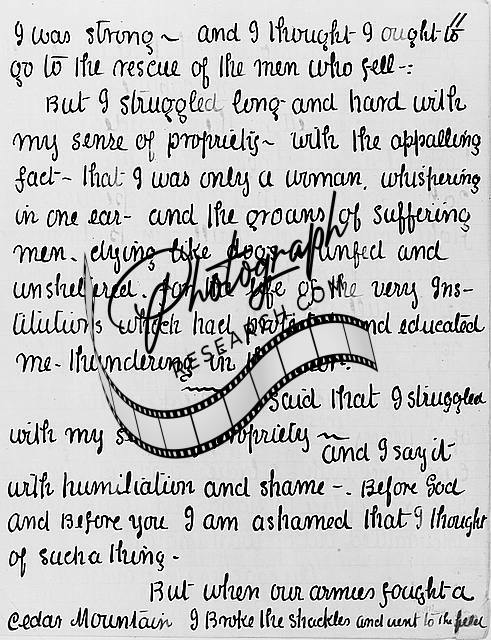 11
I was strong ~ and I thought I ought to
go to the rescue of the men who fell -:
But I struggled long and hard with
my sense of propriety ~ with the appalling
fact - that I was only a woman, whispering
in one ear - and the groans of suffering
men, dying like dogs - unfed and
unsheltered, for the life of the very Ins-
titutions which had protected and educated
me - thundering in the
Photograph
RESEARCH.COM
I said that I struggled
with my sense of propriety ~
and I say it
with humiliation and shame -. Before God
and Before you I am ashamed that I thought
of such a thing -
But when our armies fought a
Cedar Mountain I Broke the shackles and went to the field